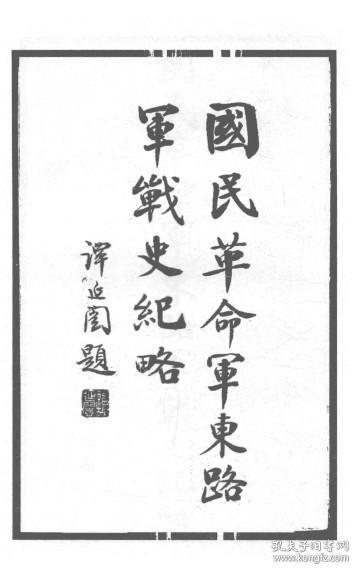 國民革命軍東路
軍戰史紀略
譚延闓題
孔夫子旧书网
www.kongfz.com